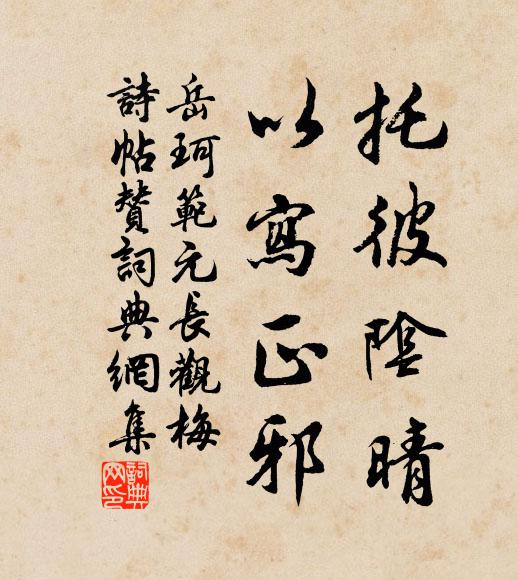 托彼陰晴
以寫正邪
岳珂範元長觀梅
詩帖贊詞典網集
詞典網印